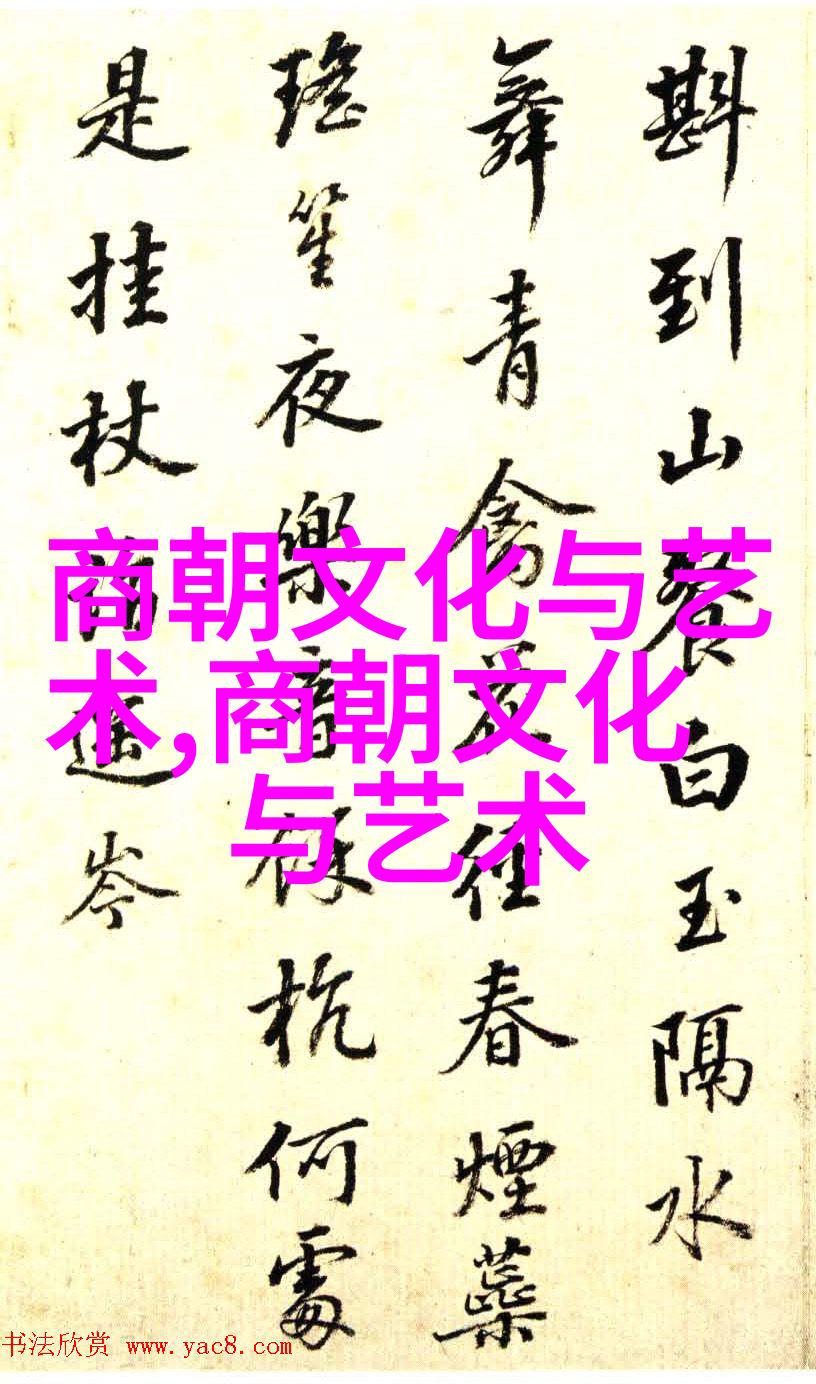 斟到山餐白玉隔水
舞青禽花径春煙蘂
瑤笙夜樂餘杭何處
是挂杖遥岑
商朝文化与艺
术,商朝文化
与艺术
书法欣赏 www.yac8.com